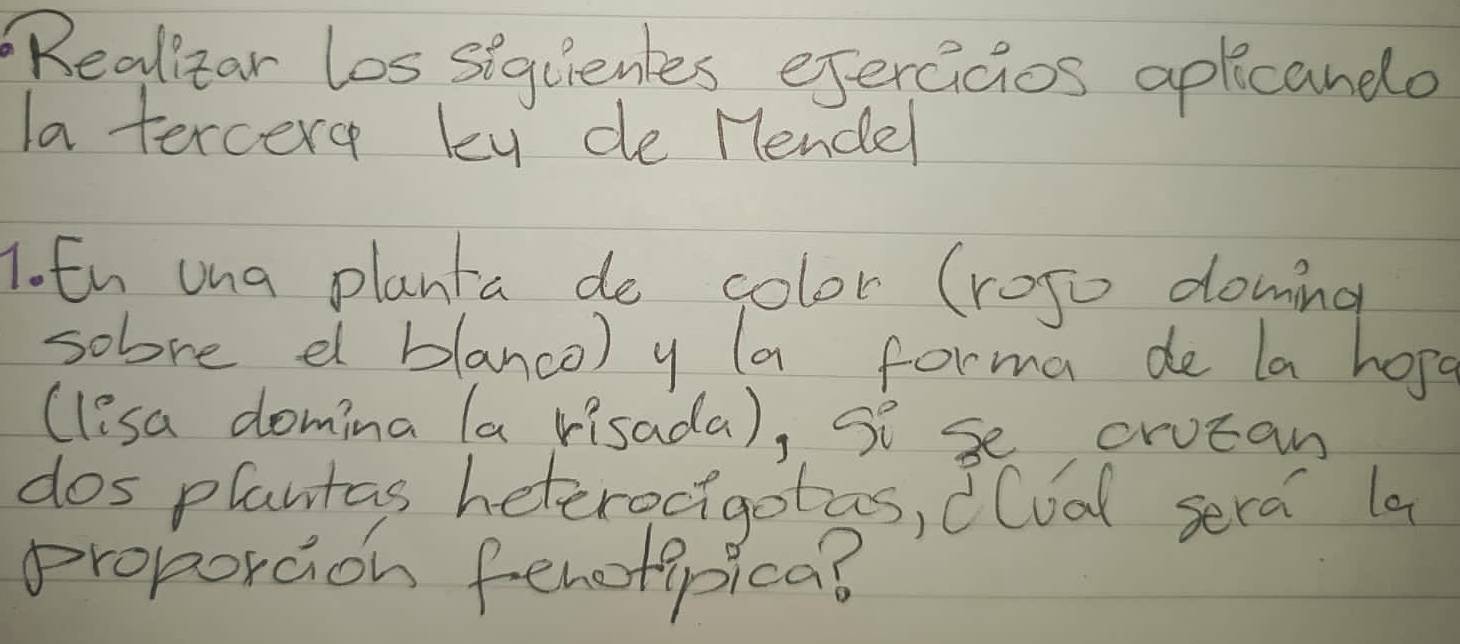 •Realizar los siguientes ejercicios aplicando
la tercera ley de Mendel
1.En una planta de color (rojo domina
sobre el blanco) y la forma de la hoja
(lisa domina la risada), si se cruzan
dos plantas heterocigotas, ¿Cúal será la
proporción fenotípica?